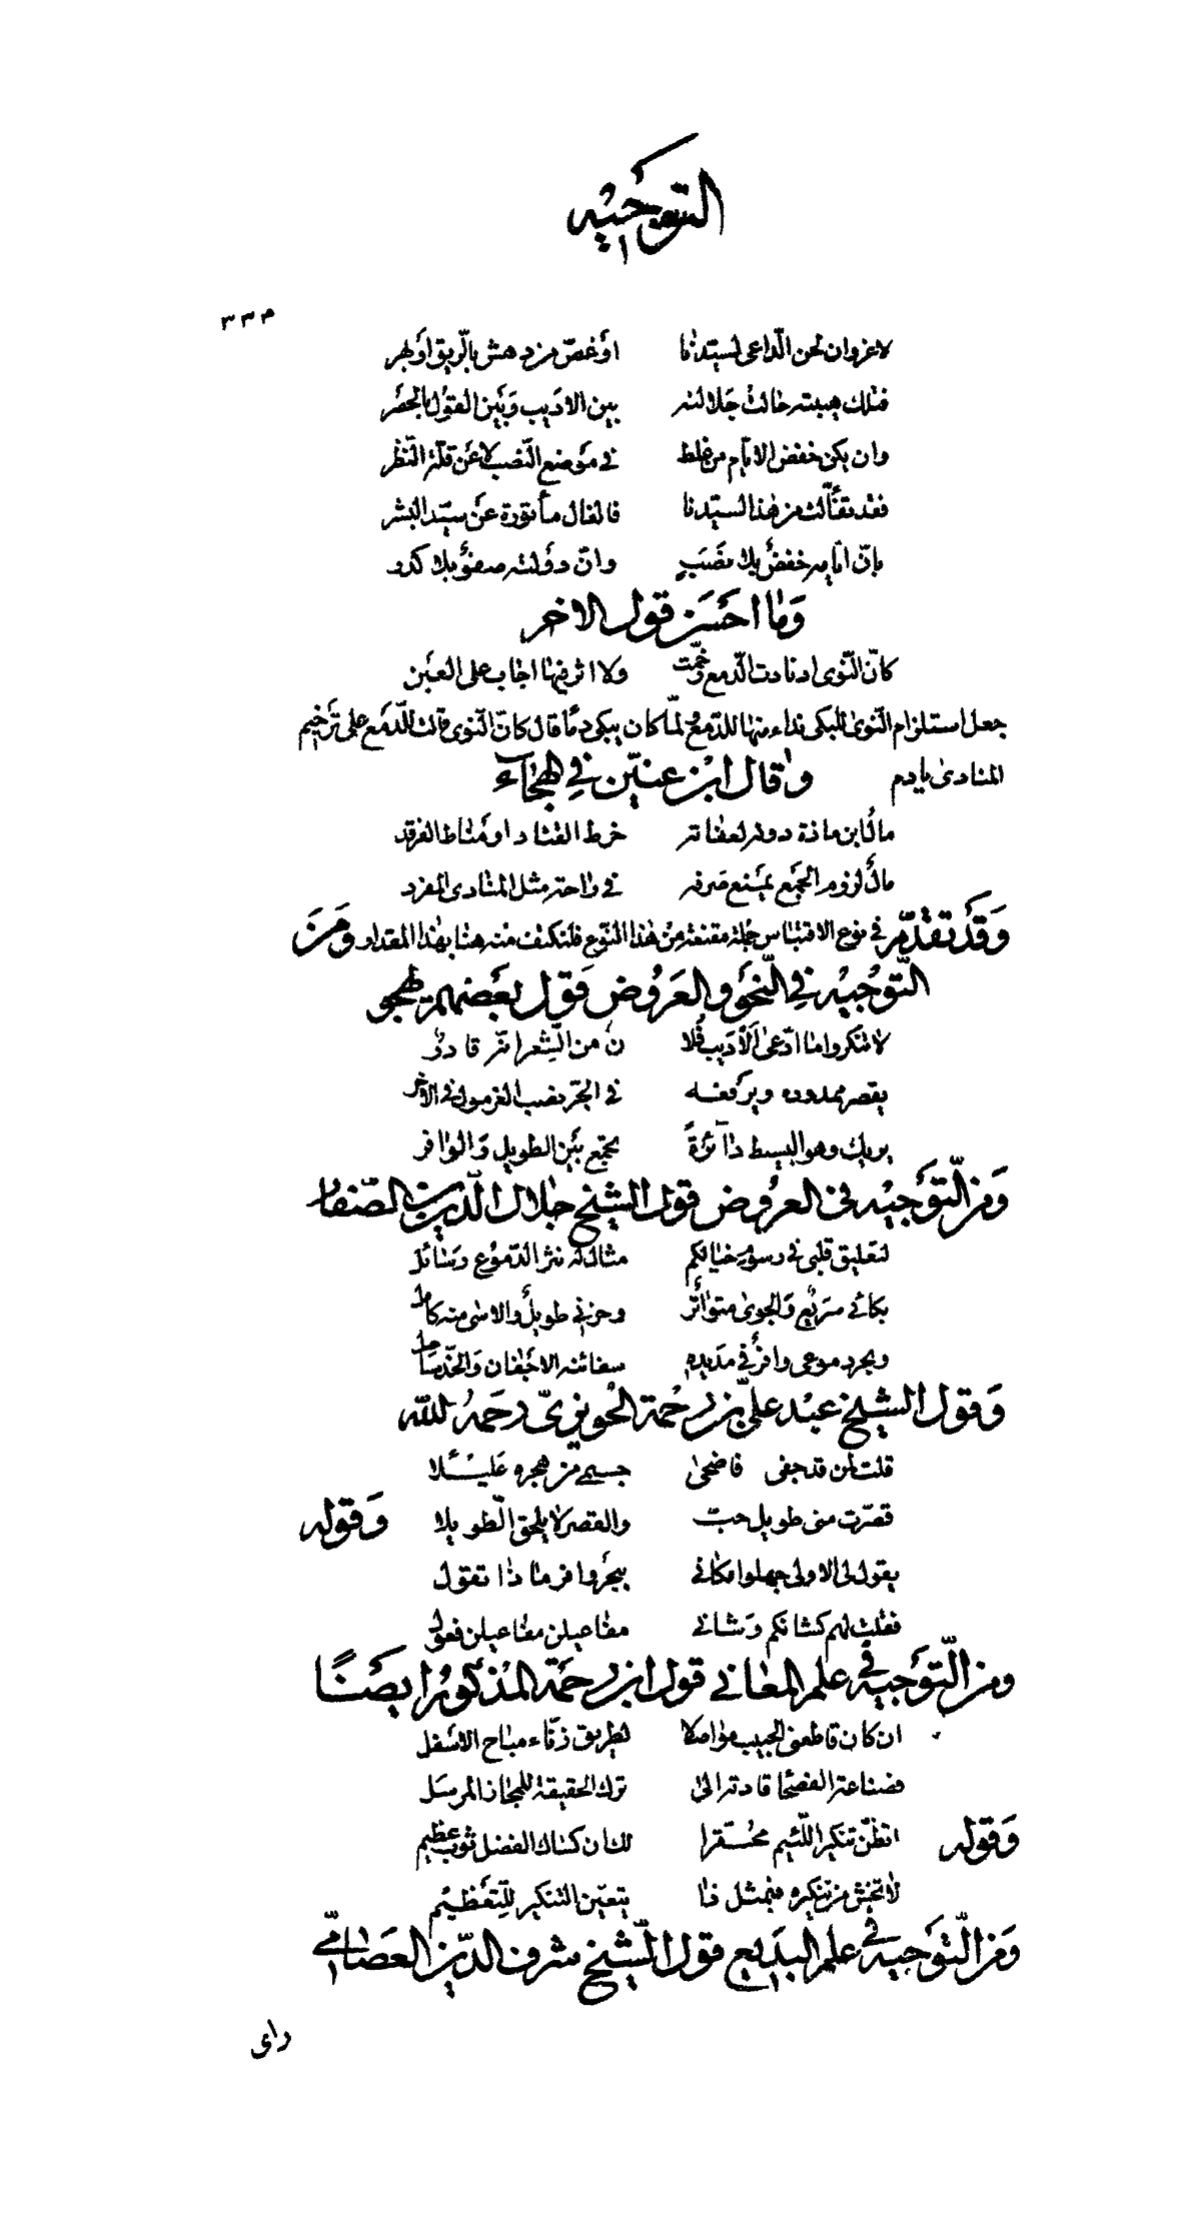 التوجيه
٣٣٣
لاغروان لحن الداعى لسيدنا اوغصّ من دهش بالريق اوبهر
فتلك هيبته حالت جلالته بين الاديب وبين القول بالحصر
وان يكن خفض الايام من غلط فى موضع النصب لاعن قلة النظر
فقد تفألت من هذا لسيدنا فالفال مأثورة عن سيد البشر
بان ايامه خفض بلا نصب وان دولته صفو بلا كدر
وما احسن قول الاخر
كانّ النّوى اذ نادت الدّمع رخّمت ولا اثر فيها اجاب على العين
جعل استلزام النوى للبكى نداء منها للدّمع ولمّا كان يبكى دمًا قال كانّ النّوى قالت للدّمع على ترخيم
المنادى يا دم وقال ابن عنين فى الهجاء
مال ابن مازة دونه لعفاته خرط القتاد او مناط الفرقد
مال لزوم الجمع يمنع صرفه فى راحة مثل المنادى المفرد
وقد تقدّم فى نوع الاقتباس جملة مقنعة من هذا النوع فلنكتف منه هنا بهذا المقدار ومن
التوجيه فى النحو والعروض قول بعضهم يهجو
لا تنكروا ما ادّعى الاديب فلا ن من الشعر انّه قادر
يقصر ممدوده ويرفعه فى الجر نصب الغرمول فى الاخر
يريك وهو البسيط دائرة تجمع بين الطويل والوافر
ومن التوجيه فى العروض قول الشيخ جلال الدين الصفار
لتعليق قلبى فى رسوم خيالكم مثال له نثر الدموع رسائل
بكائى سريع والجوى متواتر وحزنى طويل والاسى منه كامل
وبحر دموعى وافر فى مديده سفائنه الاجفان والخدّ ساحل
وقول الشيخ عبد على بن رحمة الحويزى رحمه الله
قلت لمن قد جفى فاضحى جسمى من هجره عليلا
قصّرت منى طويل حب والقصر لا يلحق الطويلا وقوله
يقول لى الاولى جهلوا مكانى ببحر وافر ماذا تقول
فقلت لهم كشانكم وشانى مفاعيلن مفاعيلن فعول
ومن التوجيه فى علم المعانى قول ابن رحمة المذكور ايضًا
ان كان قاطعنى الحبيب مواصلا لطريق زفاء مباح الاسفل
فصناعة الفصحا قادته الى ترك الحقيقة للمجاز المرسل
وقوله اتظن تنكير اللئيم محتقرا لك ان كساك الفضل ثوب عظيم
لا تخش من تنكيره فبمثل ذا يتعين التنكير للتعظيم
ومن التوجيه فى علم البديع قول الشيخ شرف الدين العصامى
راى